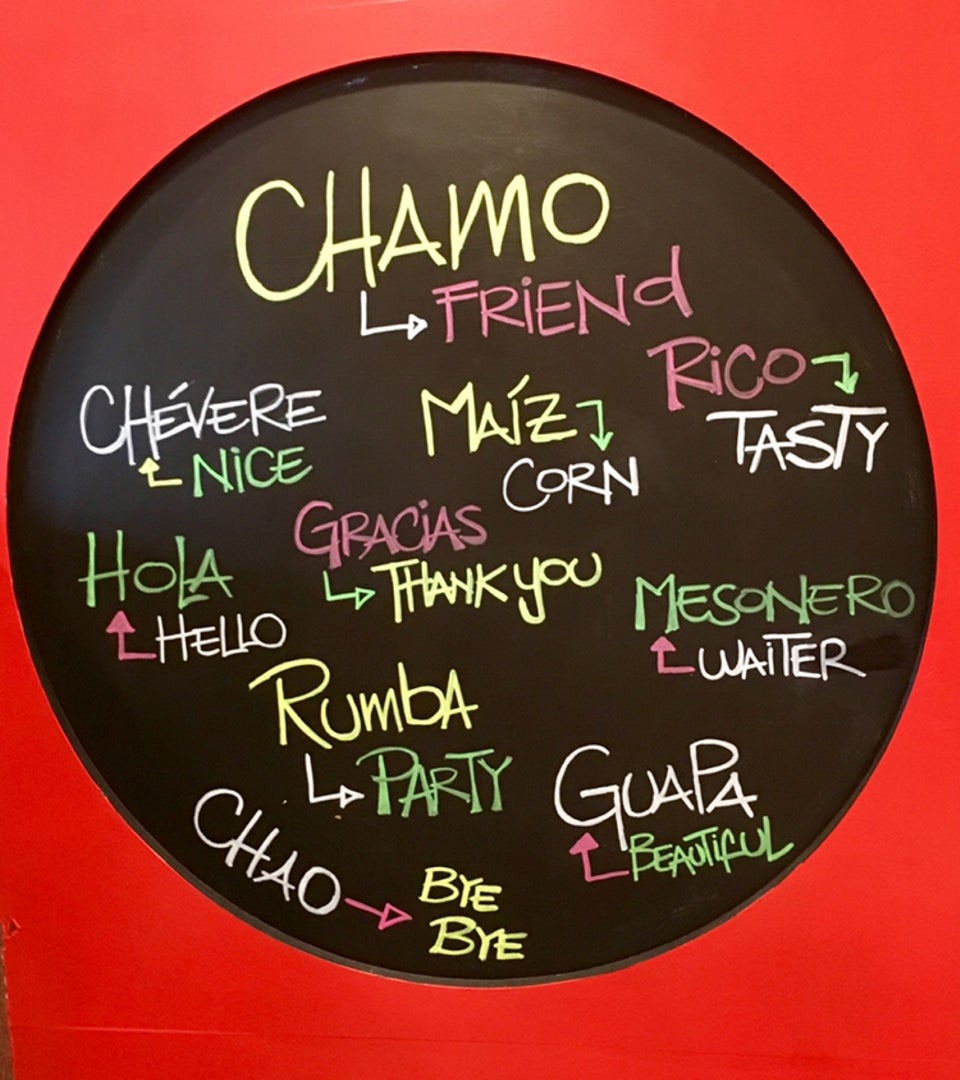 CHAMO
FRIENd
RiCO
TASTY
CHÉVERE
NiCE
MAÍZ
CORN
GRACiAS
THANK yOU
HOLA
HELLO
MESONERO
WAiTER
RumbA
PARTY
GUAPA
BEAUTiFUL
CHAO
BYE
BYE